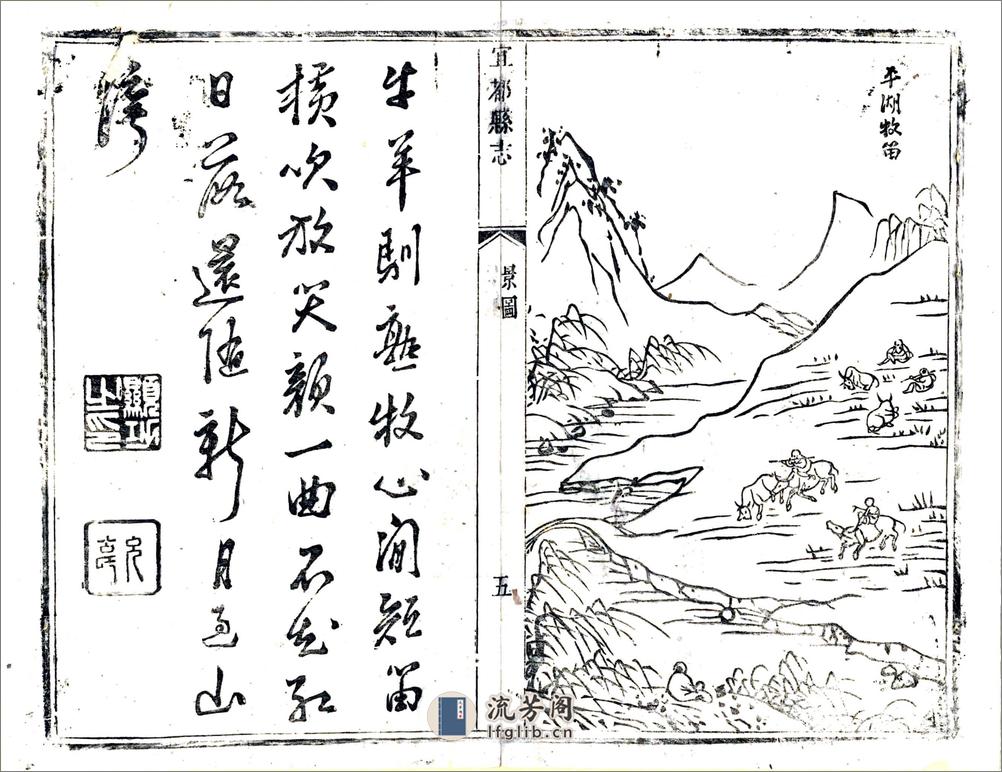 平湖牧笛
宜都縣志
景圖
五
牛羊馴熟牧心閒短笛
橫吹放笑顏一曲不知紅
日落還隨新月過山
灣
流芳阁
lfglib.cn